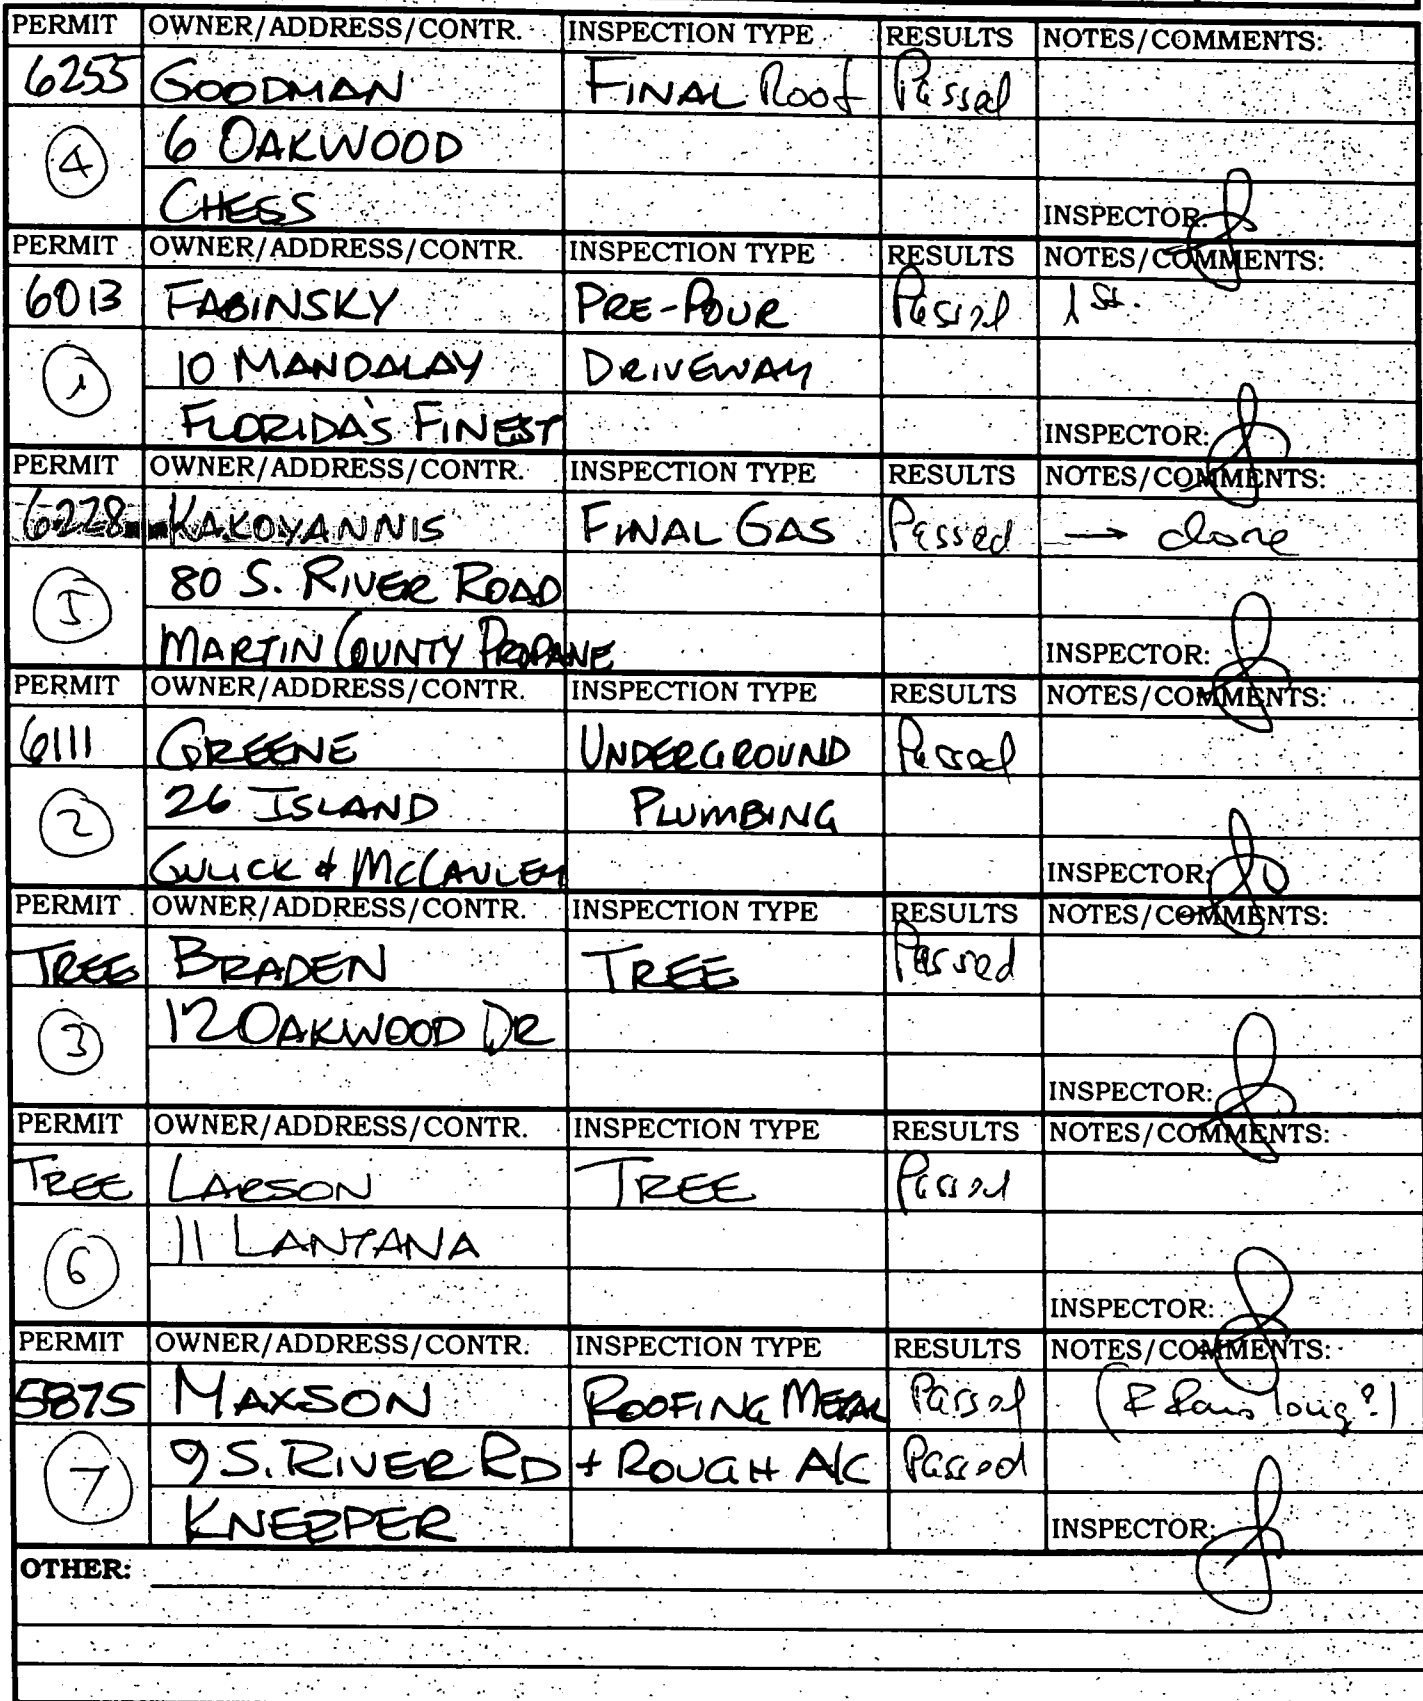 PERMIT OWNER/ADDRESS/CONTR. INSPECTION TYPE RESULTS NOTES/COMMENTS:
6255 GOODMAN FINAL Roof Passed
4 6 OAKWOOD
CHESS INSPECTOR:
PERMIT OWNER/ADDRESS/CONTR. INSPECTION TYPE RESULTS NOTES/COMMENTS:
6013 FABINSKY PRE-POUR Passed 1st.
1 10 MANDALAY DRIVEWAY
FLORIDA'S FINEST INSPECTOR:
PERMIT OWNER/ADDRESS/CONTR. INSPECTION TYPE RESULTS NOTES/COMMENTS:
6228 KAKOYANNIS FINAL GAS Passed →
5 80 S. RIVER ROAD
MARTIN COUNTY PROPANE INSPECTOR:
PERMIT OWNER/ADDRESS/CONTR. INSPECTION TYPE RESULTS NOTES/COMMENTS:
6111 GREENE UNDERGROUND Passed
2 26 ISLAND PLUMBING
GULICK + MCCAULEY INSPECTOR:
PERMIT OWNER/ADDRESS/CONTR. INSPECTION TYPE RESULTS NOTES/COMMENTS:
TREE BRADEN TREE Passed
3 12 OAKWOOD DR
INSPECTOR:
PERMIT OWNER/ADDRESS/CONTR. INSPECTION TYPE RESULTS NOTES/COMMENTS:
TREE LARSON TREE Passed
6 11 LANTANA
INSPECTOR:
PERMIT OWNER/ADDRESS/CONTR. INSPECTION TYPE RESULTS NOTES/COMMENTS:
5875 MAXSON ROOFING METAL Passed long?)
7 9 S. RIVER RD + ROUGH A/C Passed
KNEPPER INSPECTOR:
OTHER: